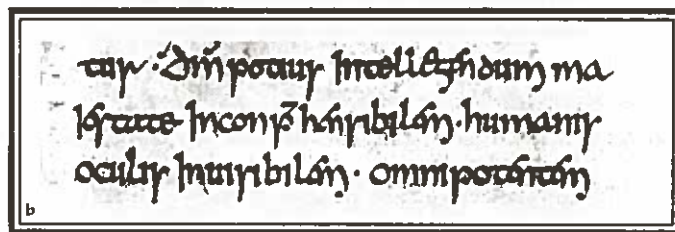 tur · Dm̄ potius intellegendum ma
iestate inconp̄hensibilem · humanis
oculis inuisibilem · omnipotentem
b